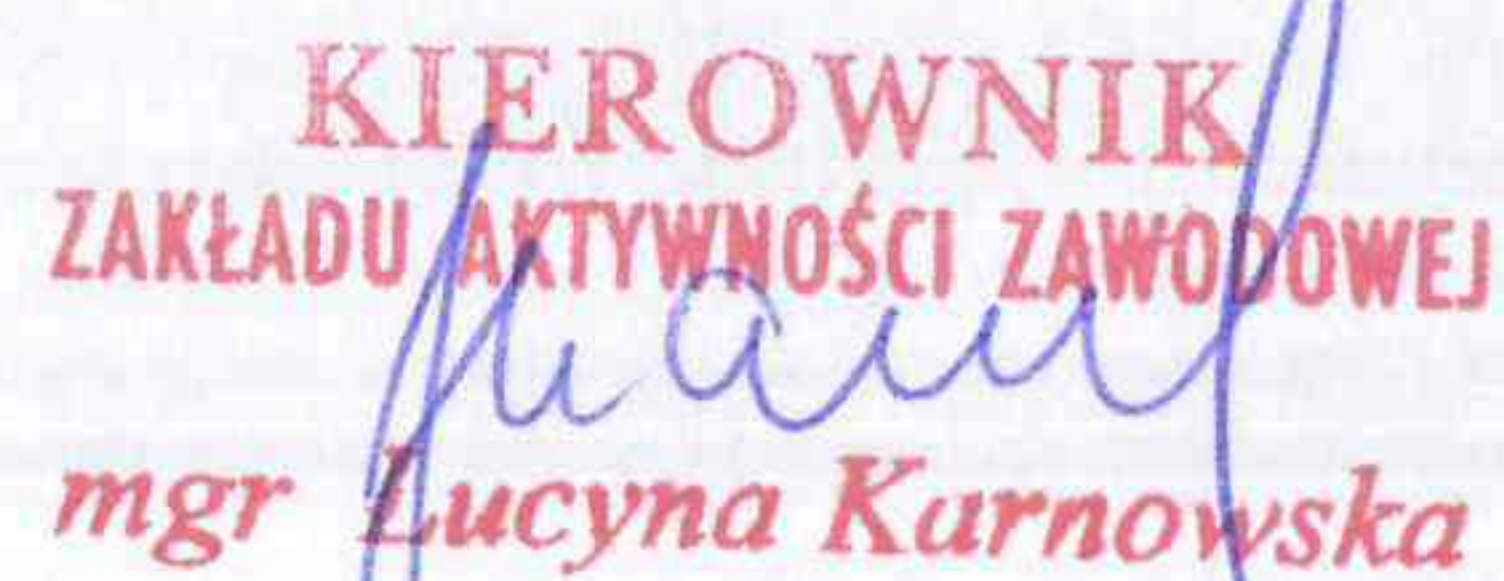 KIEROWNIK
ZAKŁADU AKTYWNOŚCI ZAWODOWEJ
mgr Lucyna Karnowska